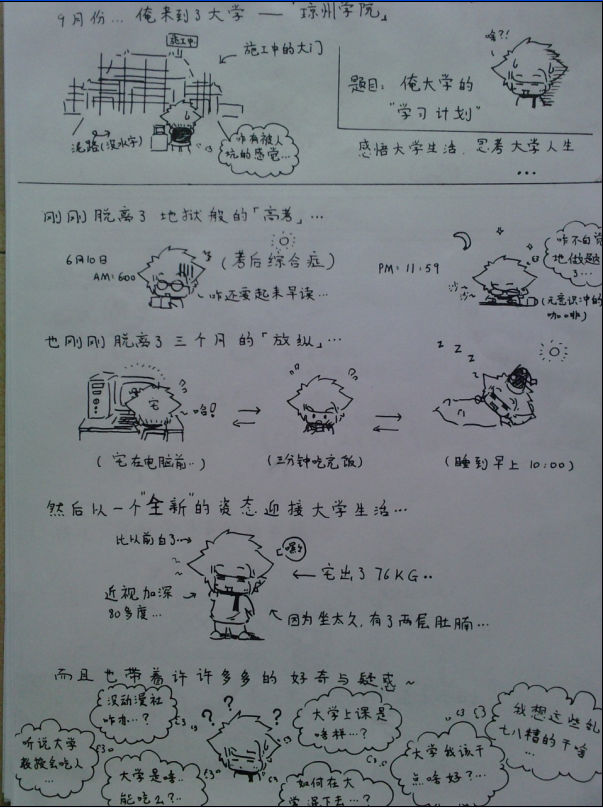 9月份... 俺来到了大学 —「琼州学院」
施工中
施工中的大门
泥路(没水字)
咋有被人
坑的感觉...
啥?!
题目: 俺大学的
"学习计划"
感悟大学生活, 思考大学人生
...
刚刚脱离了地狱般的「高考」...
6月10日
AM: 600
(考后综合症)
咋还要起来早读...
PM: 11:59
咋不自觉
地做题
了...
(无意识冲的
咖啡)
也刚刚脱离了三个月的「放纵」...
宅
哈!
z z z z
(宅在电脑前..)
(三分钟吃完饭)
(睡到早上 10:00)
然后以一个"全新"的姿态迎接大学生活...
比以前白了...
嘿!
宅出了76KG..
近视加深
80多度...
因为坐太久,有了两层肚腩...
而且也带着许许多多的好奇与疑惑~
听说大学
教授会吃人
...
没动漫社
咋办...?
大学是啥..
能吃么?..
? ? ?
大学上课是
啥样...?
如何在大
学混下去...?
大学我该干
点啥好?...
我想这些乱
七八糟的干啥
...